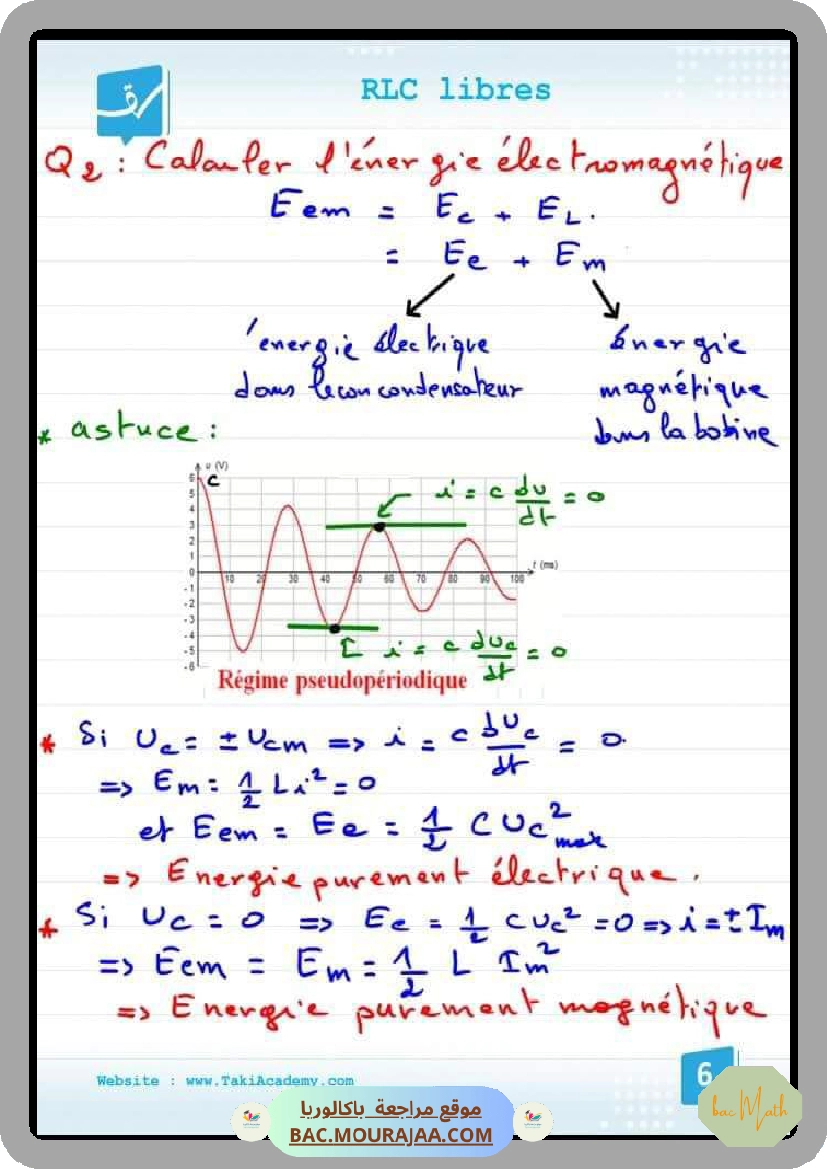 RLC libres
Q2 : Calculer l'énergie électromagnétique
Eem = Ec + EL.
= Ee + Em
l'énergie électrique
énergie
dans lecon condensateur
magnétique
dans la bobine
* astuce :
u (V)
C
i = c du/dt = 0
6
5
4
3
2
1
0
-1
-2
-3
-4
-5
-6
10 20 30 40 50 60 70 80 90 100
t (ms)
i = c duc/dt = 0
Régime pseudopériodique
* Si Uc = ± Ucm => i = c dUc/dt = 0.
=> Em = 1/2 Li² = 0
et Eem = Ee = 1/2 C Uc²max
=> Energie purement électrique.
* Si Uc = 0 => Ee = 1/2 c uc² = 0 => i = ± Im
=> Eem = Em = 1/2 L Im²
=> Energie purement magnétique
Website : www.TakiAcademy.com
6
bac Math
موقع مراجعة باكالوريا
BAC.MOURAJAA.COM